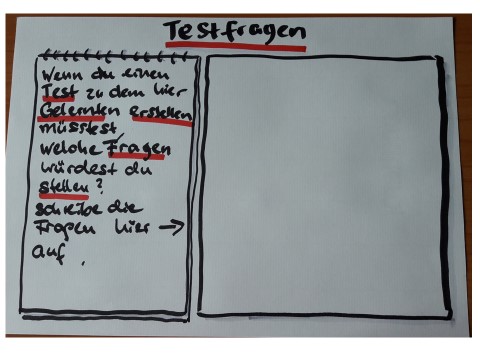 Testfragen
Wenn du einen
Test zu dem hier
Gelernten erstellen
müsstest
welche Fragen
würdest du
stellen?
schreibe die
Fragen hier →
auf.